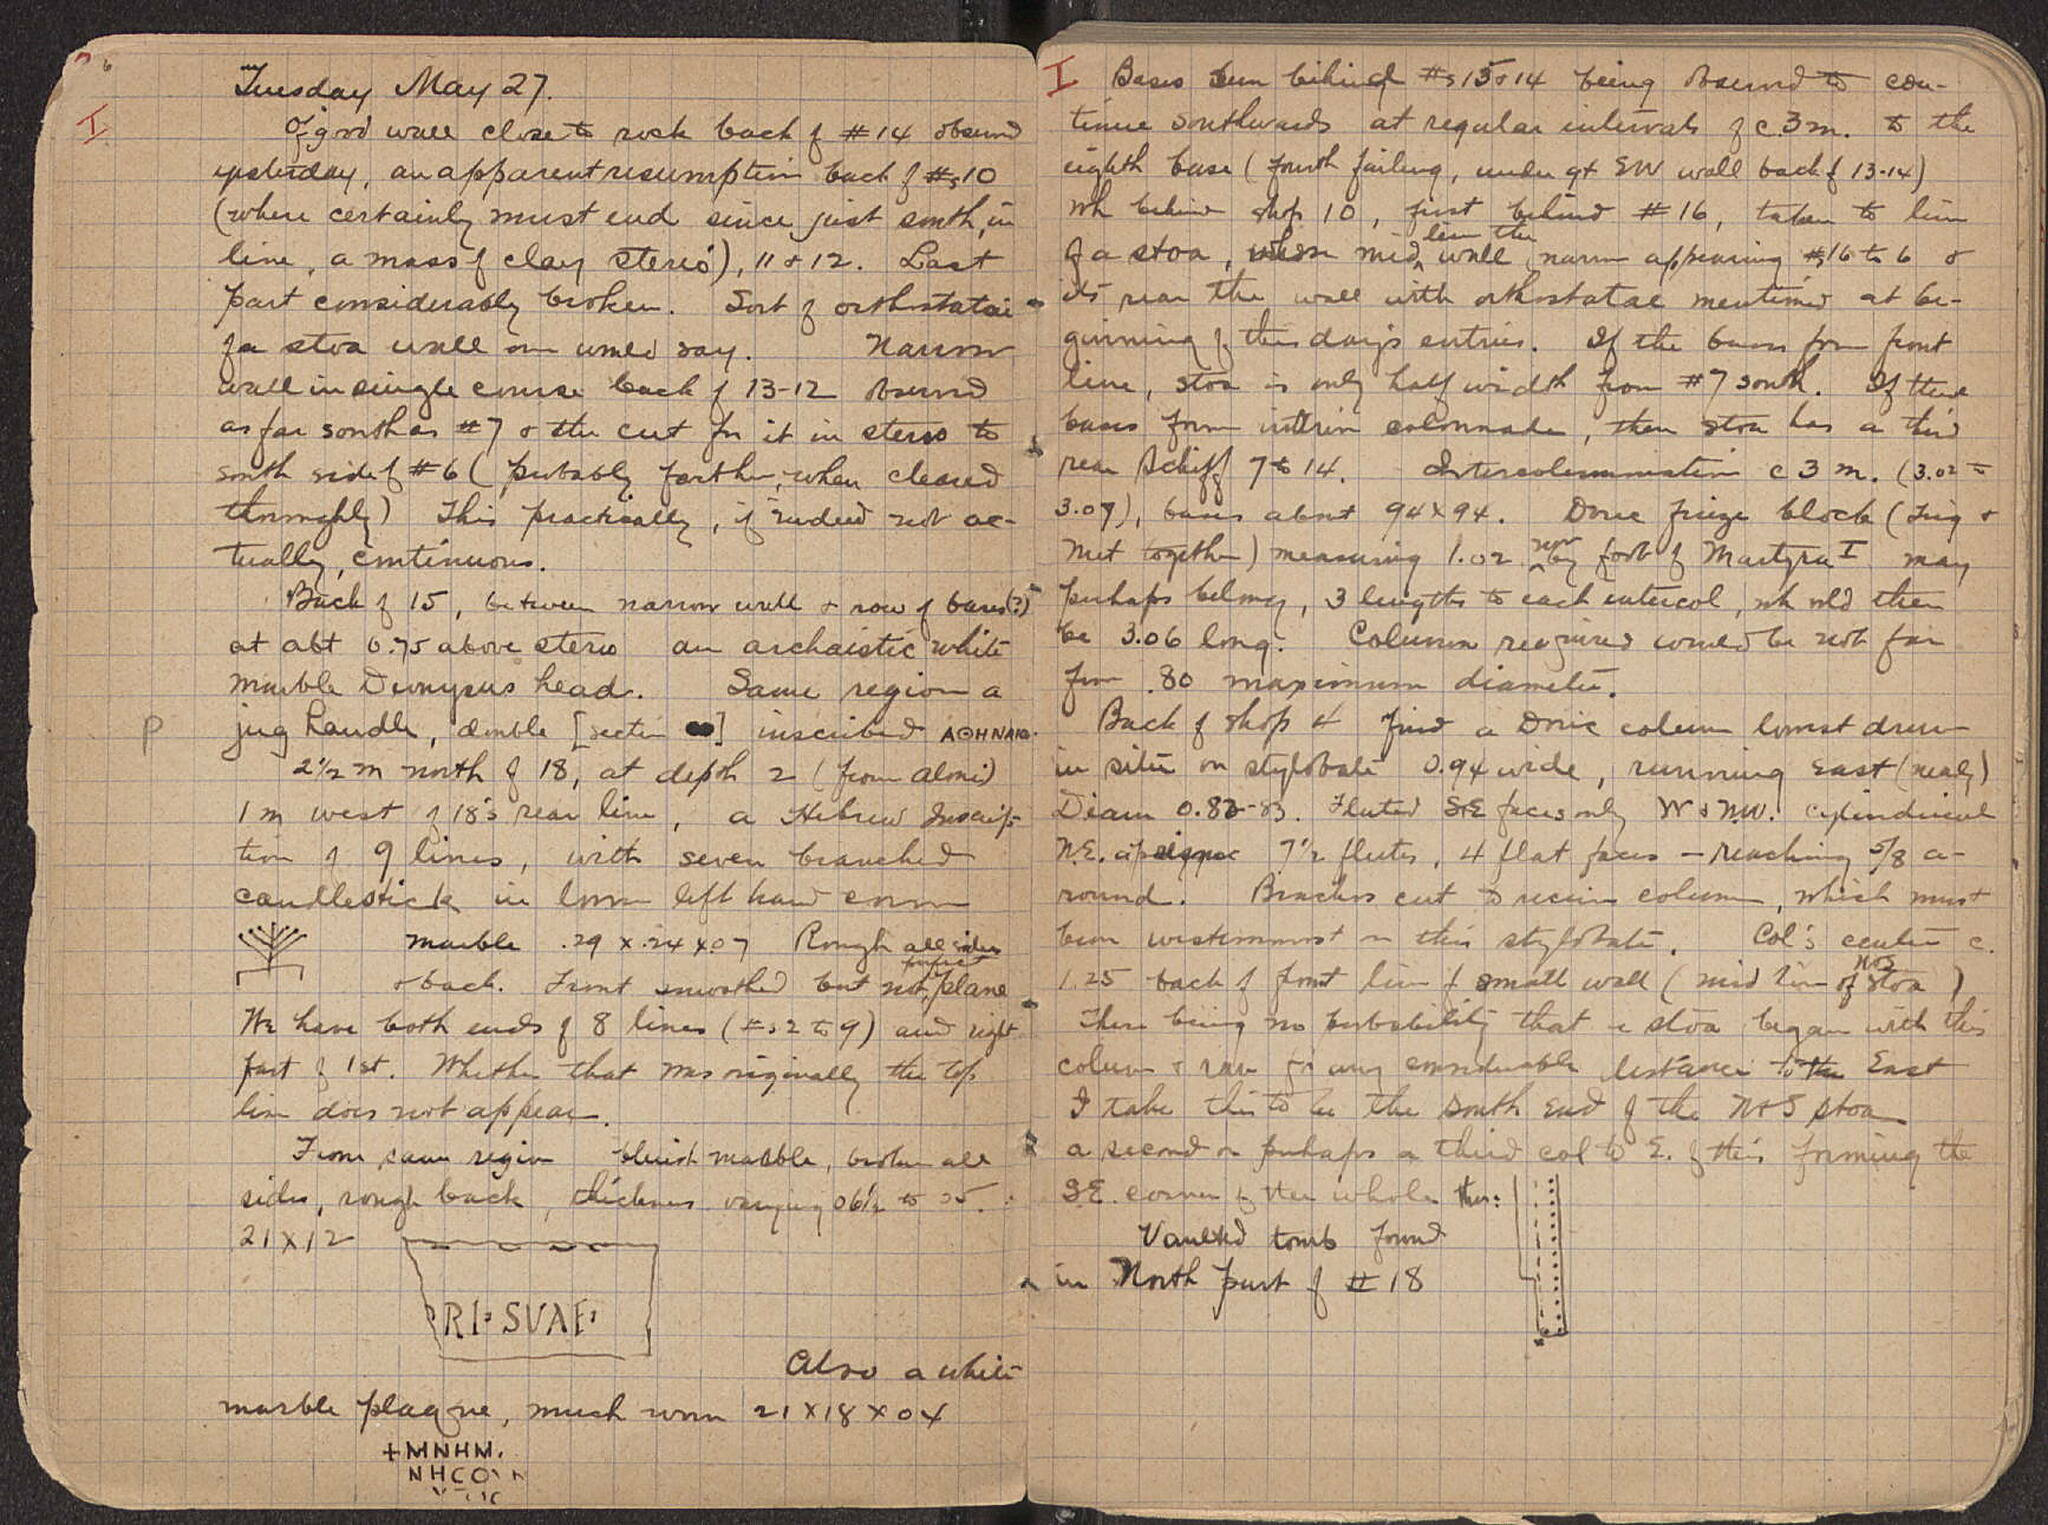 Tuesday May 27.
I
Of good wall close to rock back of #14 observed
yesterday, an apparent resumption back of #s 10
(where certainly must end since just south, in
line, a mass of clay stereo), 11 & 12. Last
part considerably broken. Sort of orthostatai
of a stoa wall one would say. Narrow
wall in single course back of 13-12 observed
as far south as #7 & the cut for it in stereo to
south side of #6 (probably farther, when cleared
thoroughly) This practically, if indeed not ac-
tually, continuous.
Back of 15, between narrow wall & row of bases(?)
at abt 0.75 above stereo an archaistic white
marble Dionysus head. Same region a
P
jug handle, double [section] inscribed ΑΘΗΝΑΙΟ
2½ m north of 18, at depth 2 (from aloni)
1 m west of 18's rear line, a Hebrew Inscrip-
tion of 9 lines, with seven branched
candlestick in lower left hand corner
marble .29 x .24 x 07 Rough all sides
& back. Front smoothed but not perfect plane
We have both ends of 8 lines (#s 2 to 9) and right
part of 1st. Whether that was originally the top
line does not appear.
From same region bluish marble, broken all
sides, rough back, thickness varying 06½ to 05.
21 x 12
RI: SVAE
Also a white
marble plaque, much worn 21 x 18 x 04
+MNHM.
NHCO
I
Bases seen behind #s 15 & 14 being observed to con-
tinue southwards at regular intervals of c. 3 m. to the
eighth base (fourth failing, under gt EW wall back of 13-14)
wh behind shop 10, first behind #16, taken to line
of a stoa, whose mid line the wall narrow appearing #s 16 to 6 &
its rear the wall with orthostatae mentioned at be-
ginning of this day's entries. If the bases form front
line, stoa is only half width from #7 south. If these
bases form interior colonnade, then stoa has a third
rear Schiff 7 to 14. Intercolumniation c 3 m. (3.02 to
3.07), bases about 94 x 94. Doric frieze block (trig &
met together) measuring 1.02 now by foot of Martyra I may
perhaps belong, 3 lengths to each intercol, wh wld then
be 3.06 long. Column required would be not far
from .80 maximum diameter.
Back of shop 4 find a Doric column lowest drum
in situ on stylobate 0.94 wide, running East (nearly)
Diam 0.82-83. Fluted S & E faces only W & N.W. cylindrical
N.E. 7½ flutes, 4 flat faces — reaching 5/8 a-
round. cut to receive column, which must
been westernmost on this stylobate. Col's center c.
1.25 back of front line of small wall (mid line of N & S stoa)
There being no probability that a stoa began with this
column & ran for any considerable distance to the East
I take this to be the South End of the N & S stoa
a second or perhaps a third col to E. of this forming the
S.E. corner of the whole thus:
Vaulted tomb found
in North part of #18